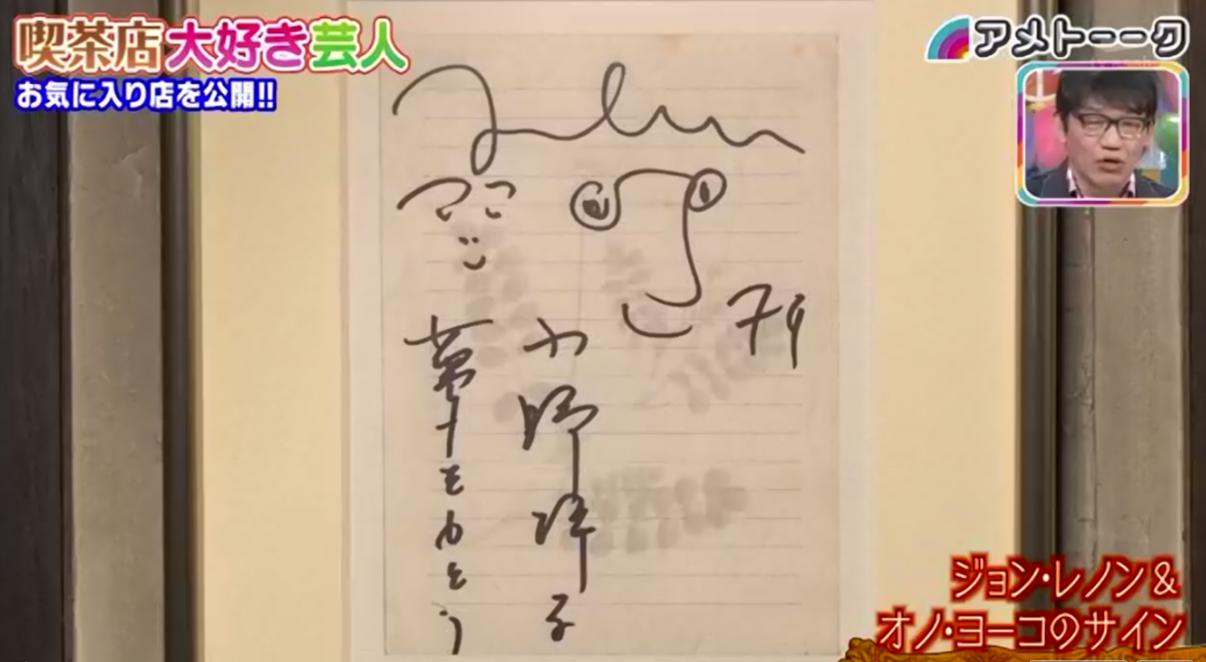 喫茶店大好き芸人
お気に入り店を公開!!
アメトーーク
John
79
小野洋子
夢をもとう
ジョン・レノン&
オノ・ヨーコのサイン